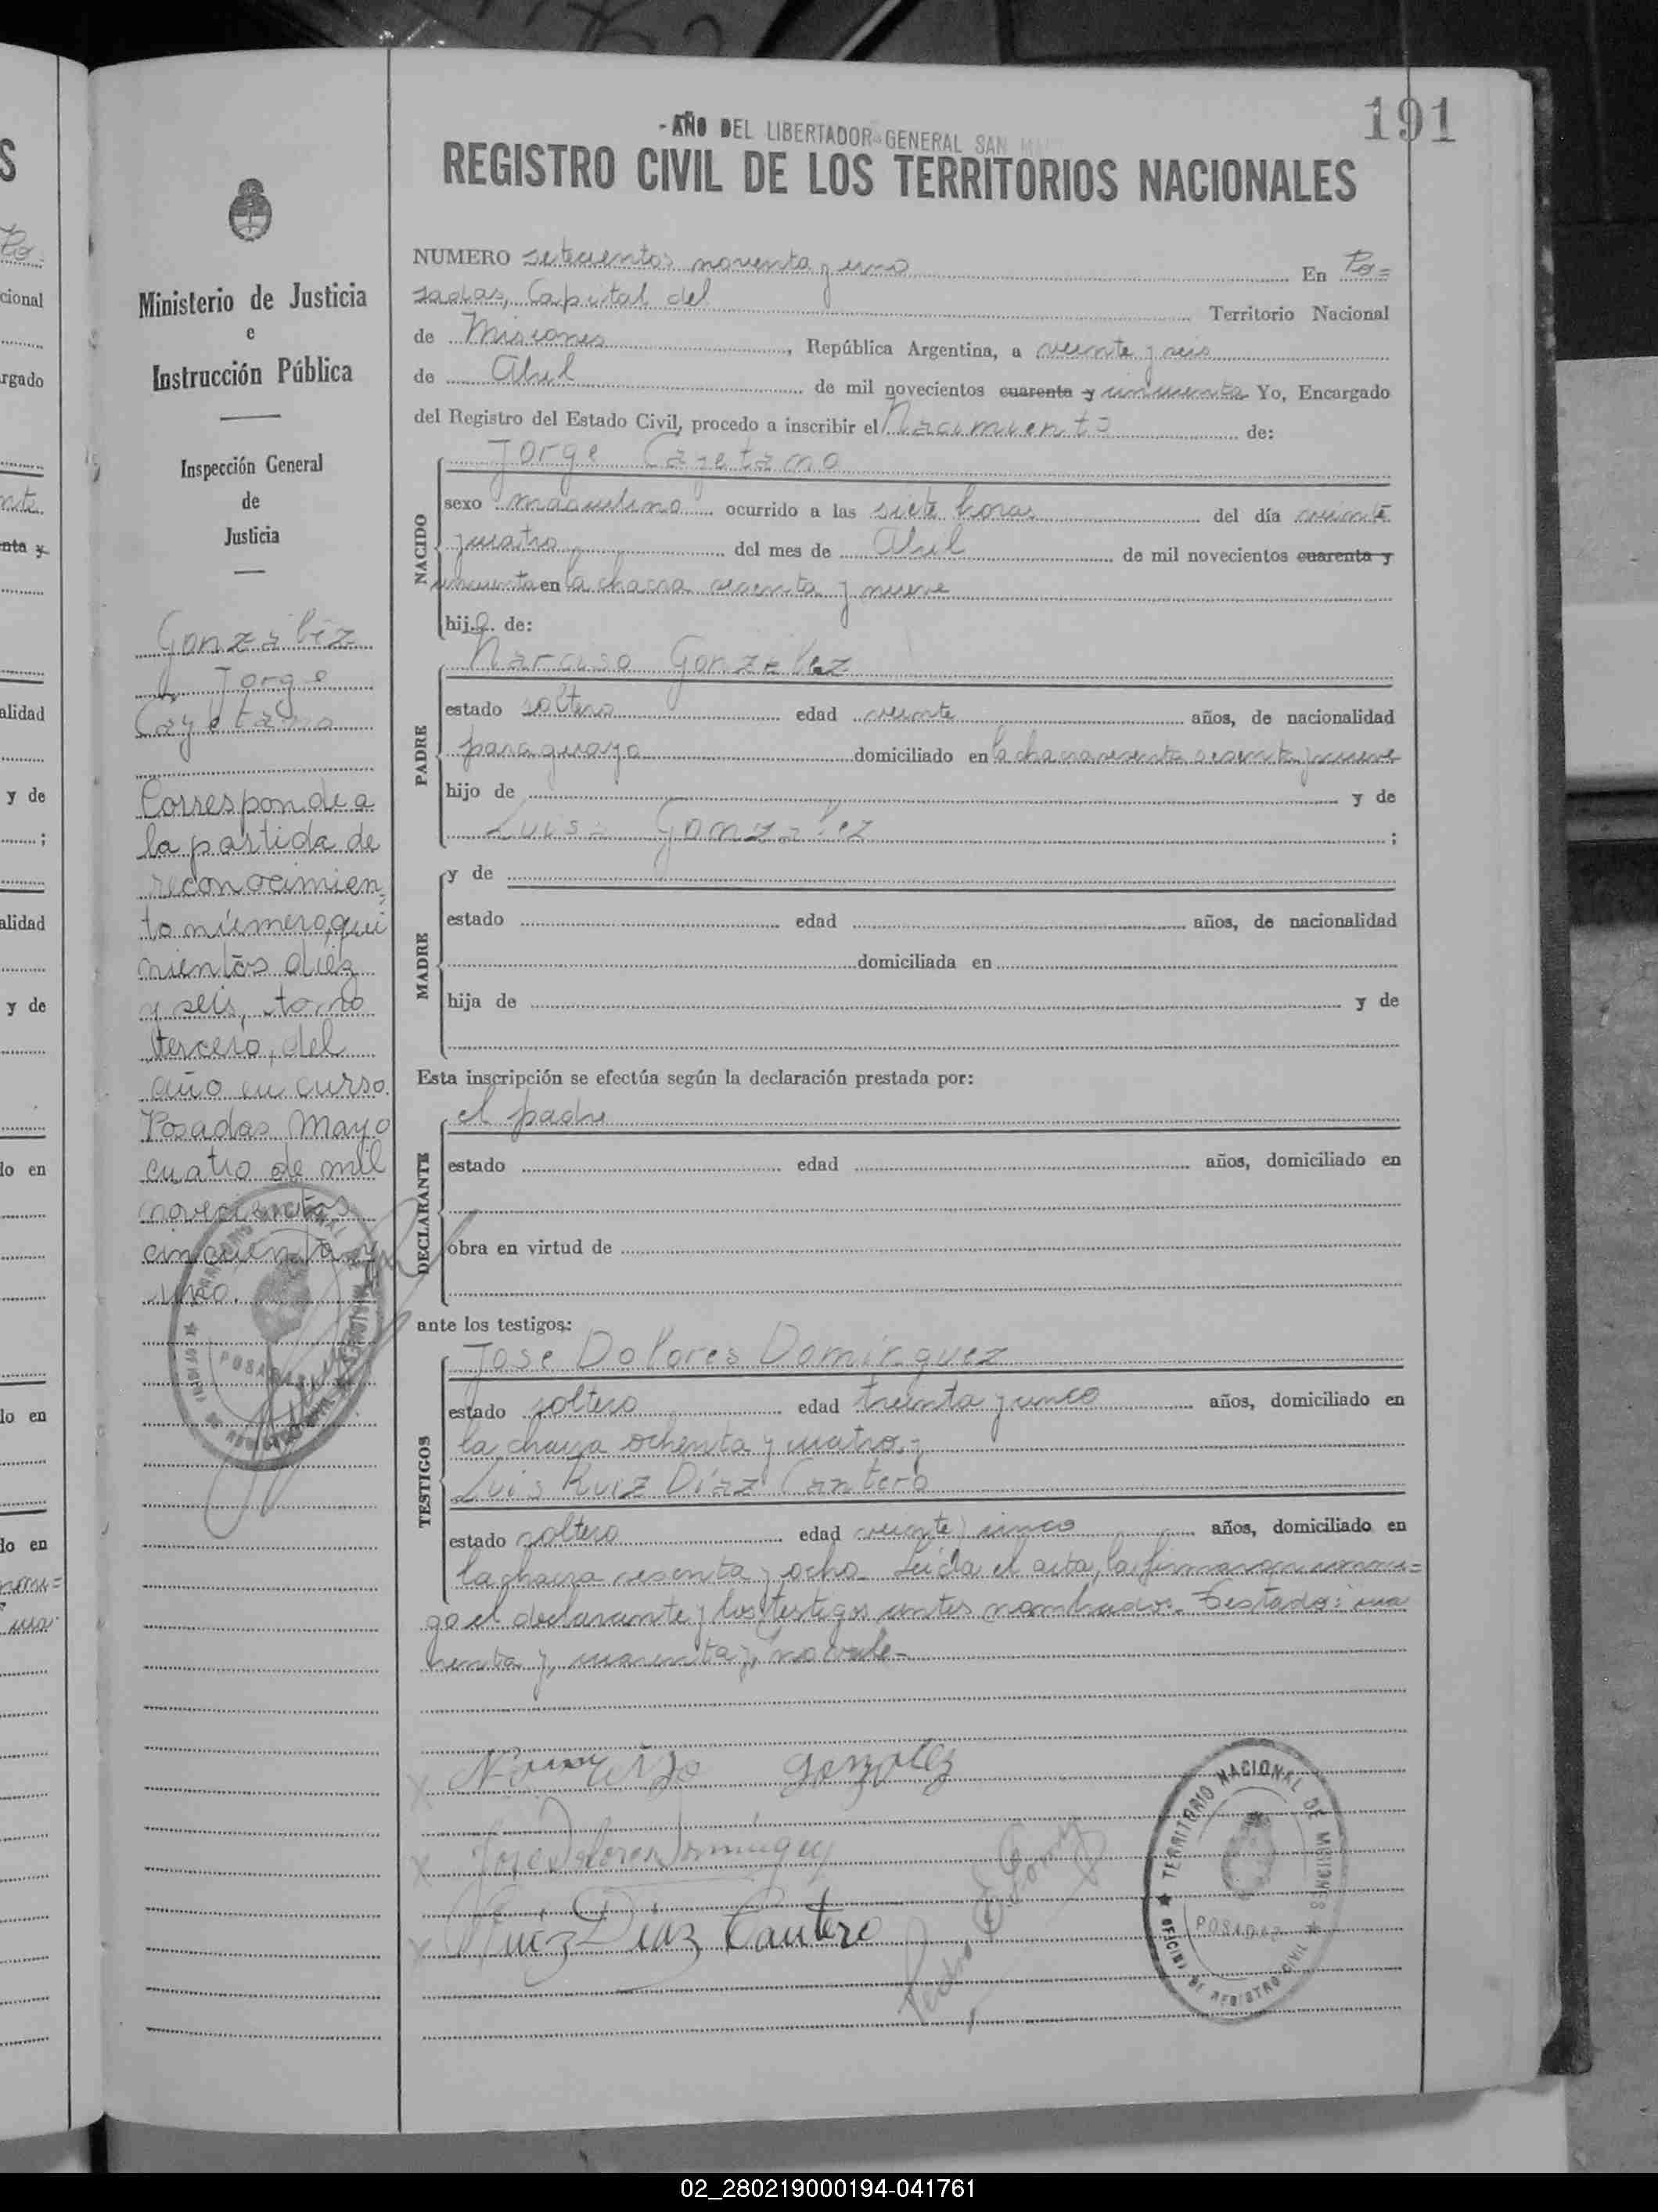 191
- AÑO DEL LIBERTADOR GENERAL SAN
REGISTRO CIVIL DE LOS TERRITORIOS NACIONALES
Ministerio de Justicia
e
Instrucción Pública
Inspección General
de
Justicia
González
Jorge
Cayetano
Corresponde a
la partida de
reconocimien-
to número qui
nientos diez
y seis, tomo
tercero, del
año en curso.
Posadas Mayo
cuatro de mil
novecientos
cincuenta y
uno.
NUMERO setecientos noventa y uno En Po=
sadas, Capital del Territorio Nacional
de Misiones, República Argentina, a veinte y seis
de Abril de mil novecientos cuarenta y cincuenta Yo, Encargado
del Registro del Estado Civil, procedo a inscribir el Nacimiento de:
Jorge Cayetano
NACIDO
sexo masculino ocurrido a las siete horas del día veinte
y cuatro del mes de Abril de mil novecientos cuarenta y
cincuenta en la chacra sesenta y nueve
hijo de:
Narciso González
PADRE
estado soltero edad veinte años, de nacionalidad
paraguayo domiciliado en la chacra sesenta y nueve
hijo de y de
Luisa González ;
MADRE
y de
estado edad años, de nacionalidad
domiciliada en
hija de y de
Esta inscripción se efectúa según la declaración prestada por:
el padre
DECLARANTE
estado edad años, domiciliado en
obra en virtud de
ante los testigos:
José Dolores Domínguez
TESTIGOS
estado soltero edad treinta y cinco años, domiciliado en
la chacra ochenta y cuatro.-
Luis Ruiz Díaz Cantero
estado soltero edad veinte y cinco años, domiciliado en
la chacra sesenta y ocho. Leída el acta, la firmaron conmi=
go el declarante y los testigos antes nombrados. Testado: cua
renta y, cuarenta y, no vale.-
Narciso González
Jose Dolores Dominguez
Ruiz Díaz Cantero
Pedro
TERRITORIO NACIONAL DE MISIONES
POSADAS
OFICINA DE REGISTRO CIVIL
02_280219000194-041761